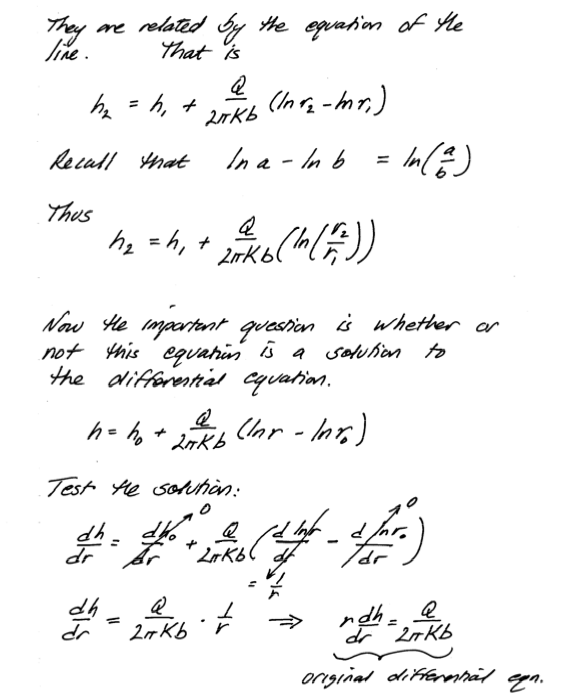 They are related by the equation of the
line. That is
h₂ = h₁ + Q/2πKb (ln r₂ - ln r₁)
Recall that ln a - ln b = ln(a/b)
Thus
h₂ = h₁ + Q/2πKb (ln(r₂/r₁))
Now the important question is whether or
not this equation is a solution to
the differential equation.
h = h₀ + Q/2πKb (ln r - ln r₀)
Test the solution:
dh/dr = dh₀/dr → 0 + Q/2πKb (d ln r/dr - d ln r₀/dr → 0)
= 1/r
dh/dr = Q/2πKb · 1/r ⇒ r dh/dr = Q/2πKb
original differential eqn.